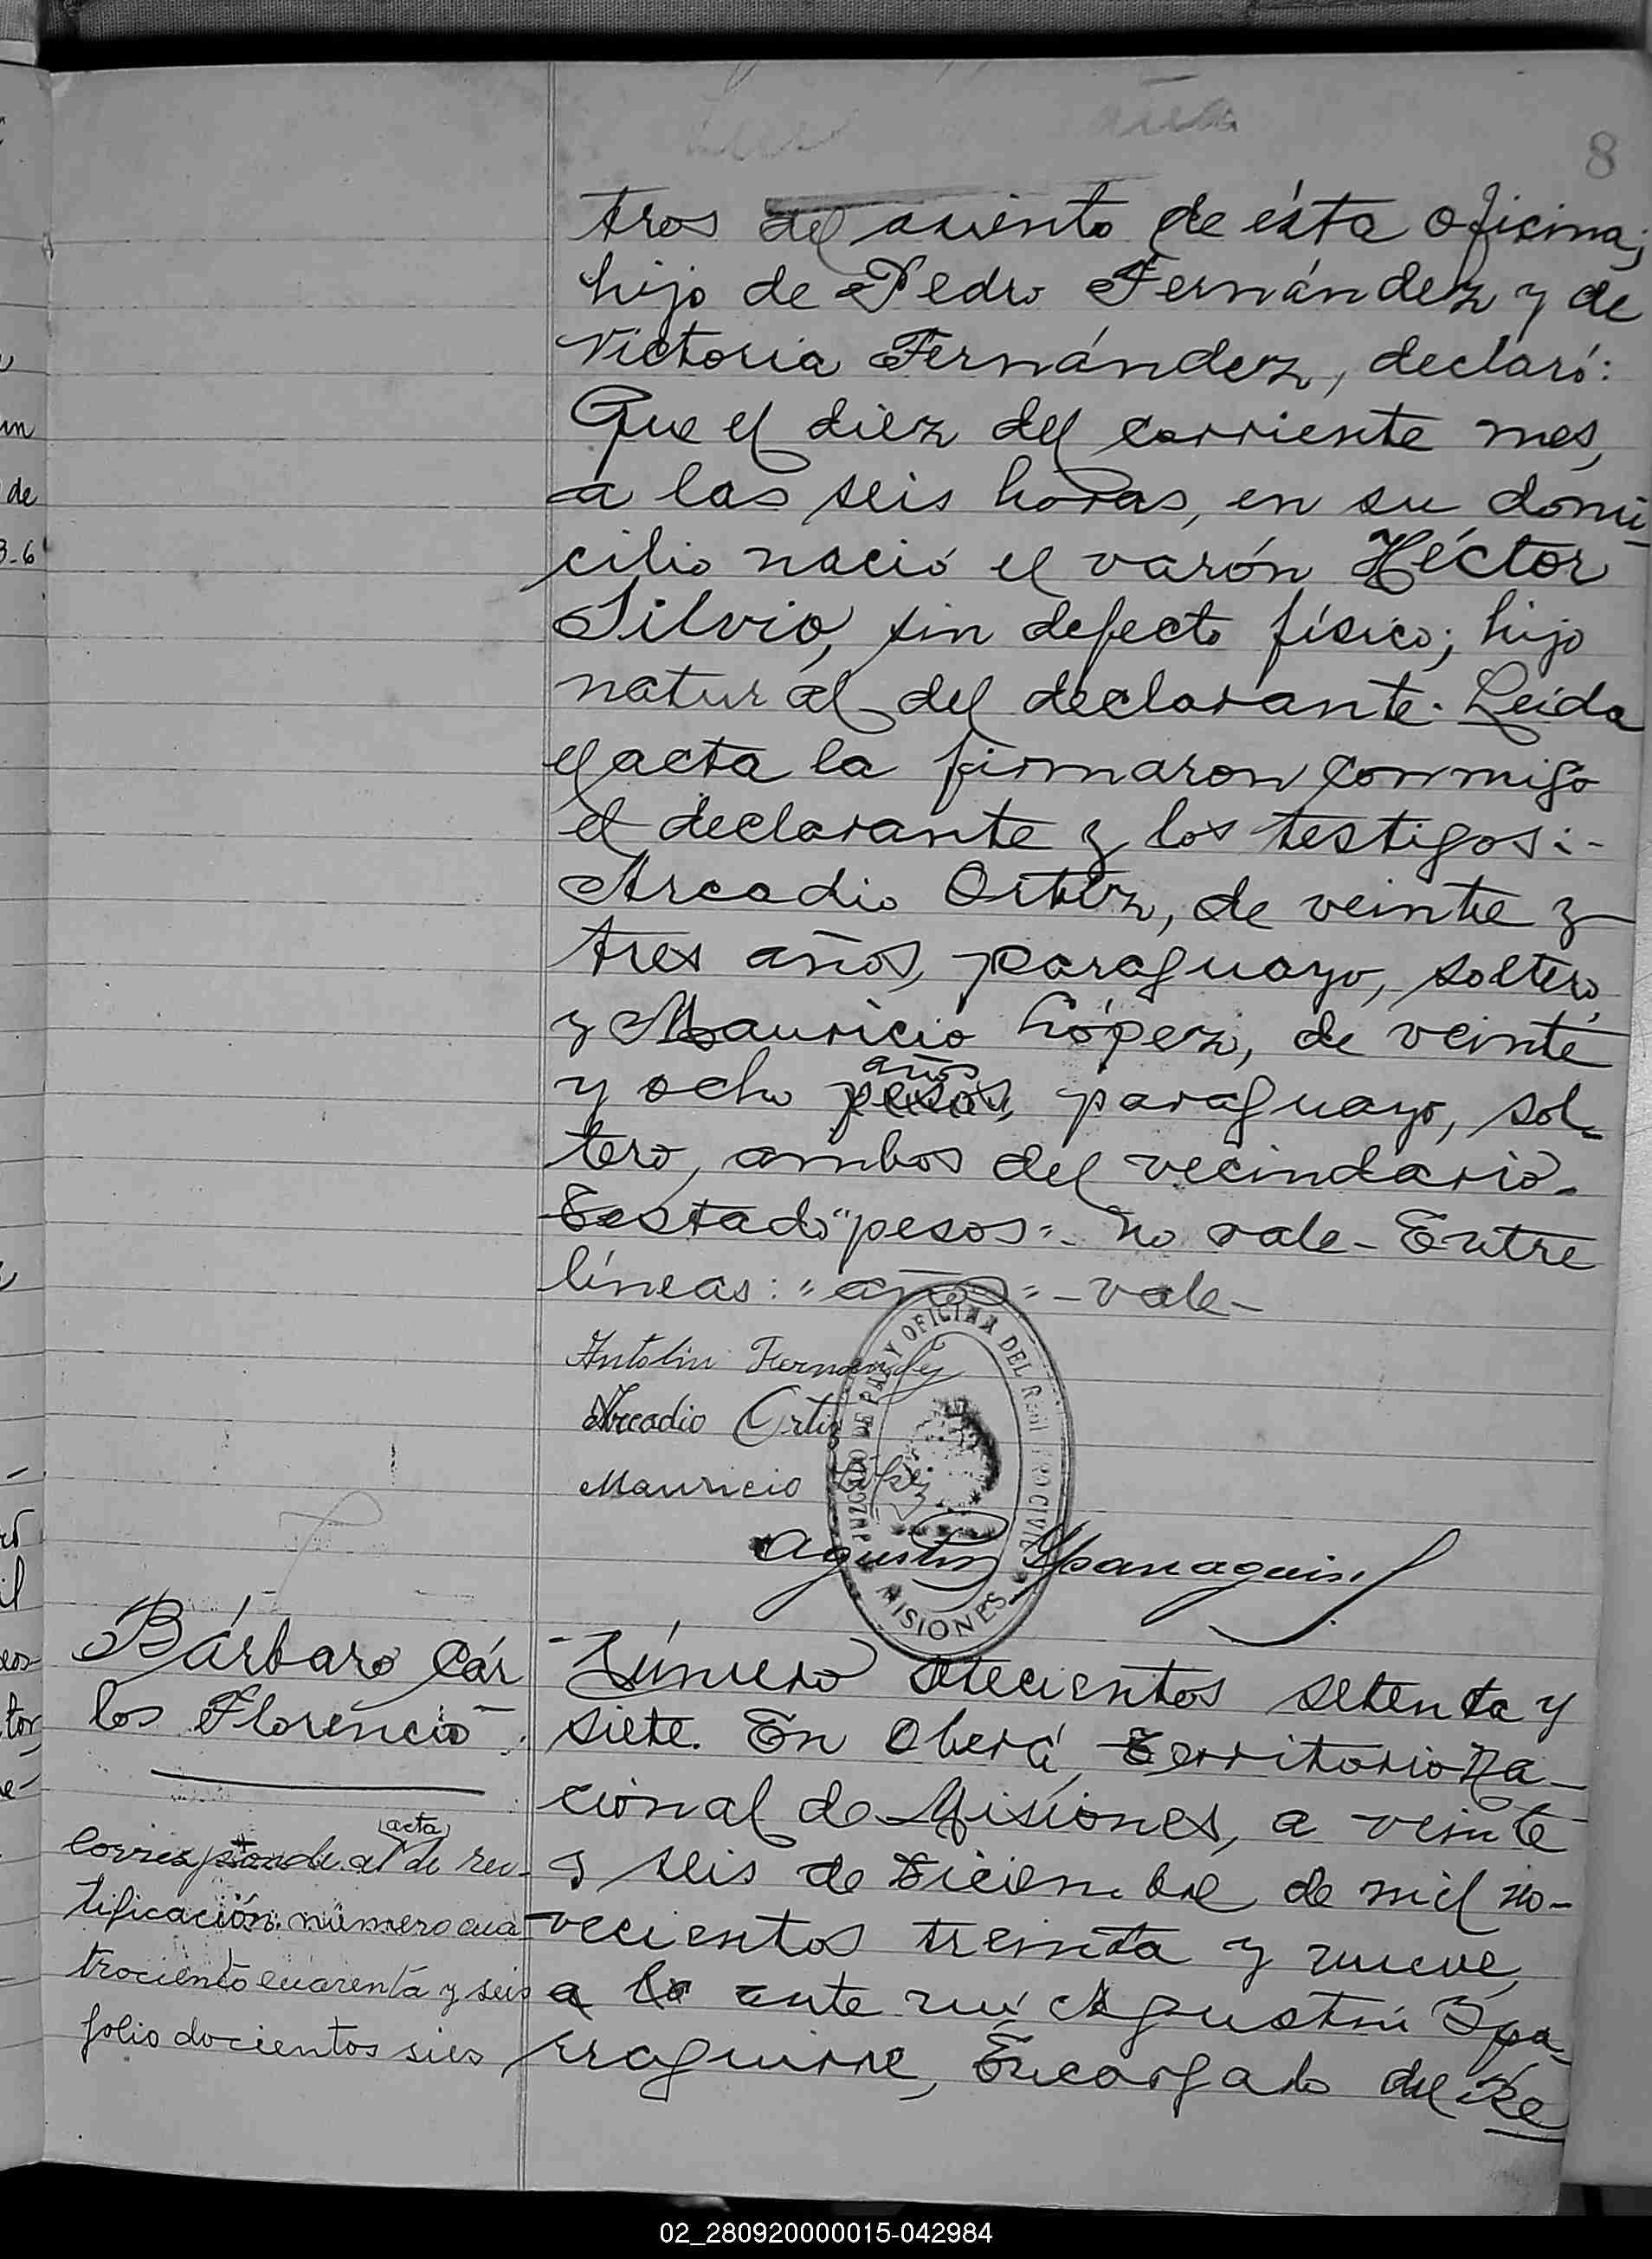 8
tros del asiento de ésta oficina;
hijo de Pedro Fernández y de
Victoria Fernández, declaró:
Que el diez del corriente mes,
a las seis horas, en su domi-
cilio nació el varón Héctor
Silvio, sin defecto físico; hijo
natural del declarante. Leida
el acta la firmaron conmigo
el declarante y los testigos:-
Arcadio Ortíz, de veinte y
tres años, paraguayo, soltero,
y Mauricio López, de veinte
años
y ocho pesos, paraguayo, sol-
tero, ambos del vecindario.
Testado "pesos": no vale- Entre
líneas: "años"- vale-
Antolin Fernandez
Arcadio Ortiz
Mauricio López
JUZGADO DE PAZ Y OFICINA DEL REGISTRO CIVIL
MISIONES
Agustin
Bárbaro Cár
los Florencio
acta
Corresponde al de rec-
tificación número cua
trociento cuarenta y seis
folio docientos
Número setecientos setenta y
siete. En Oberá, Territorio Na-
cional de Misiones, a veinte
y seis de Diciembre de mil no-
vecientos treinta y nueve,
a lo ante mí Agustín Ypa-
rraguirre, Encargado del Re
02_280920000015-042984